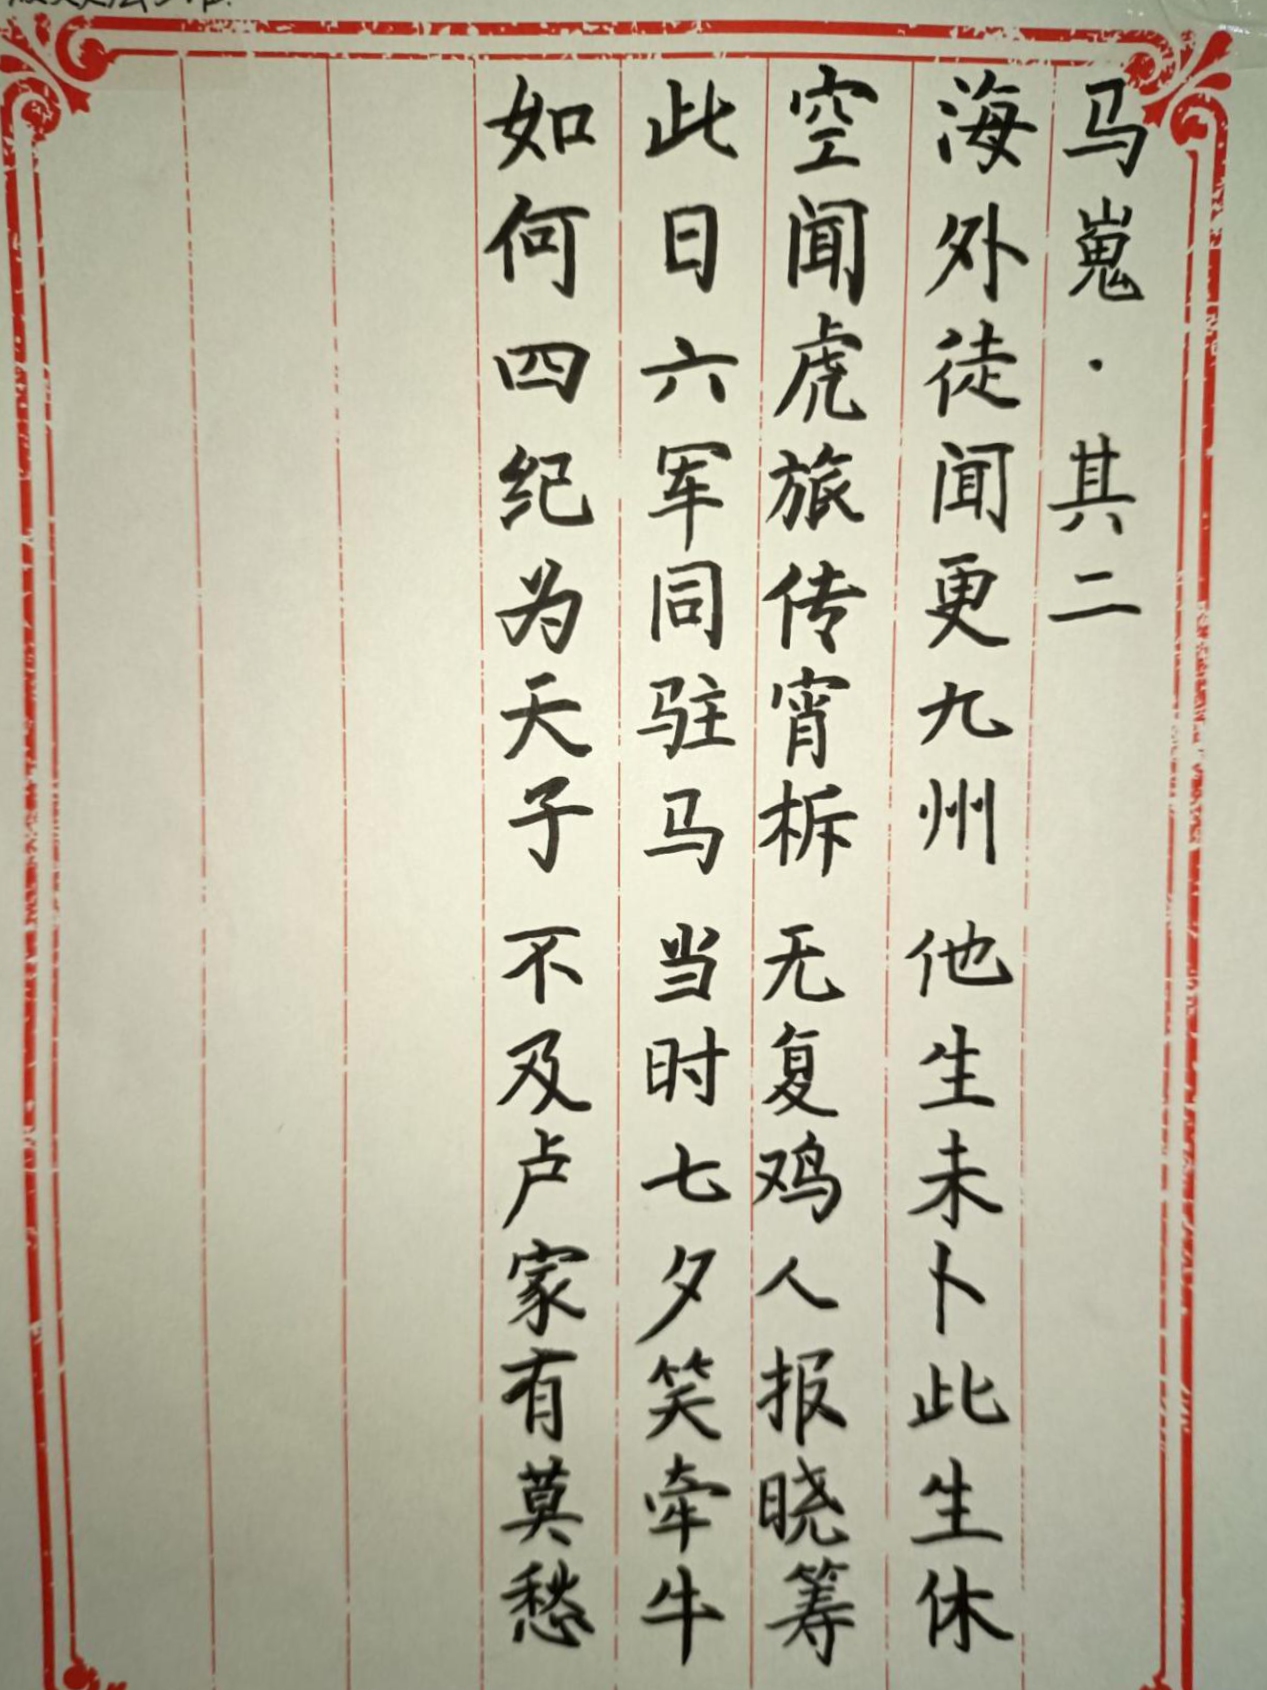 马嵬·其二
海外徒闻更九州 他生未卜此生休
空闻虎旅传宵柝 无复鸡人报晓筹
此日六军同驻马 当时七夕笑牵牛
如何四纪为天子 不及卢家有莫愁